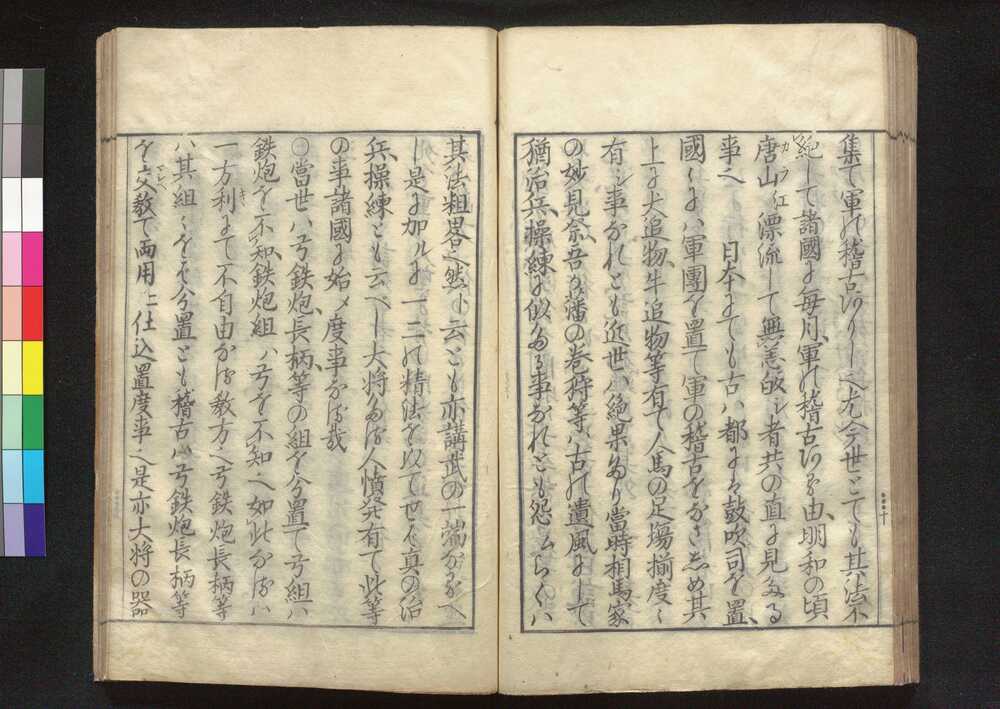 集て軍の稽古ありし也尤今世とても其法不
絶して諸國に毎月軍の稽古ある由明和の頃
唐山江漂流して無恙皈し者共の直に見たる
事也 日本にても古ハ都にハ鼓吹司を置
國〻にハ軍團を置て軍の稽古をなさしめ其
上に犬追物牛追物等有て人馬の足場揃度〻
有し事なれとも近世ハ絶果たり當時相馬家
の妙見祭吾か藩の巻狩等ハ古の遺風にして
猶治兵操練に似たる事なれとも怨ムらくハ
其法粗畧也然ト云とも亦講武の一端なるへ
し是に加ルに一二の精法を以てせは真の治
兵操練とも云べし大将たる人憤発有て此等
の事諸國に始メ度事なる哉
〇當世ハ弓鉄炮長柄等の組を分置て弓組ハ
鉄炮を不知鉄炮組ハ弓を不知也如此なるハ
一方利にて不自由なる教方也弓鉄炮長柄等
ハ其組〻をは分置とも稽古ハ弓鉄炮長柄等
を交教て両用ニ仕込置度事也是亦大将の器